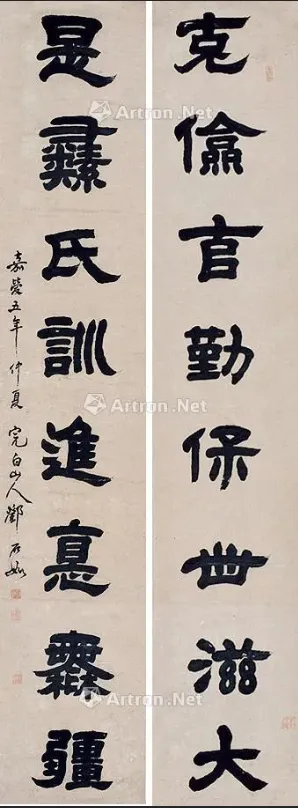 克儉言勤保世滋大
是彝氏訓進悳無疆
嘉慶五年仲夏完白山人鄧石如
Artron.Net
Artron.Net
Artron.Net
Artron.Net